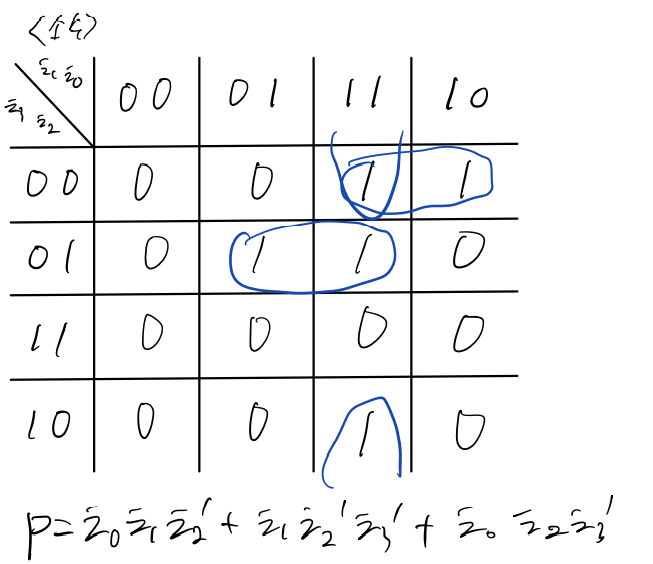 <소수>
z₁ z₀
z₃ z₂
00 01 11 10
00 0 0 1 1
01 0 1 1 0
11 0 0 0 0
10 0 0 1 0
p = z₀z₁z₂' + z₁z₂'z₃' + z₀z₂z₃'